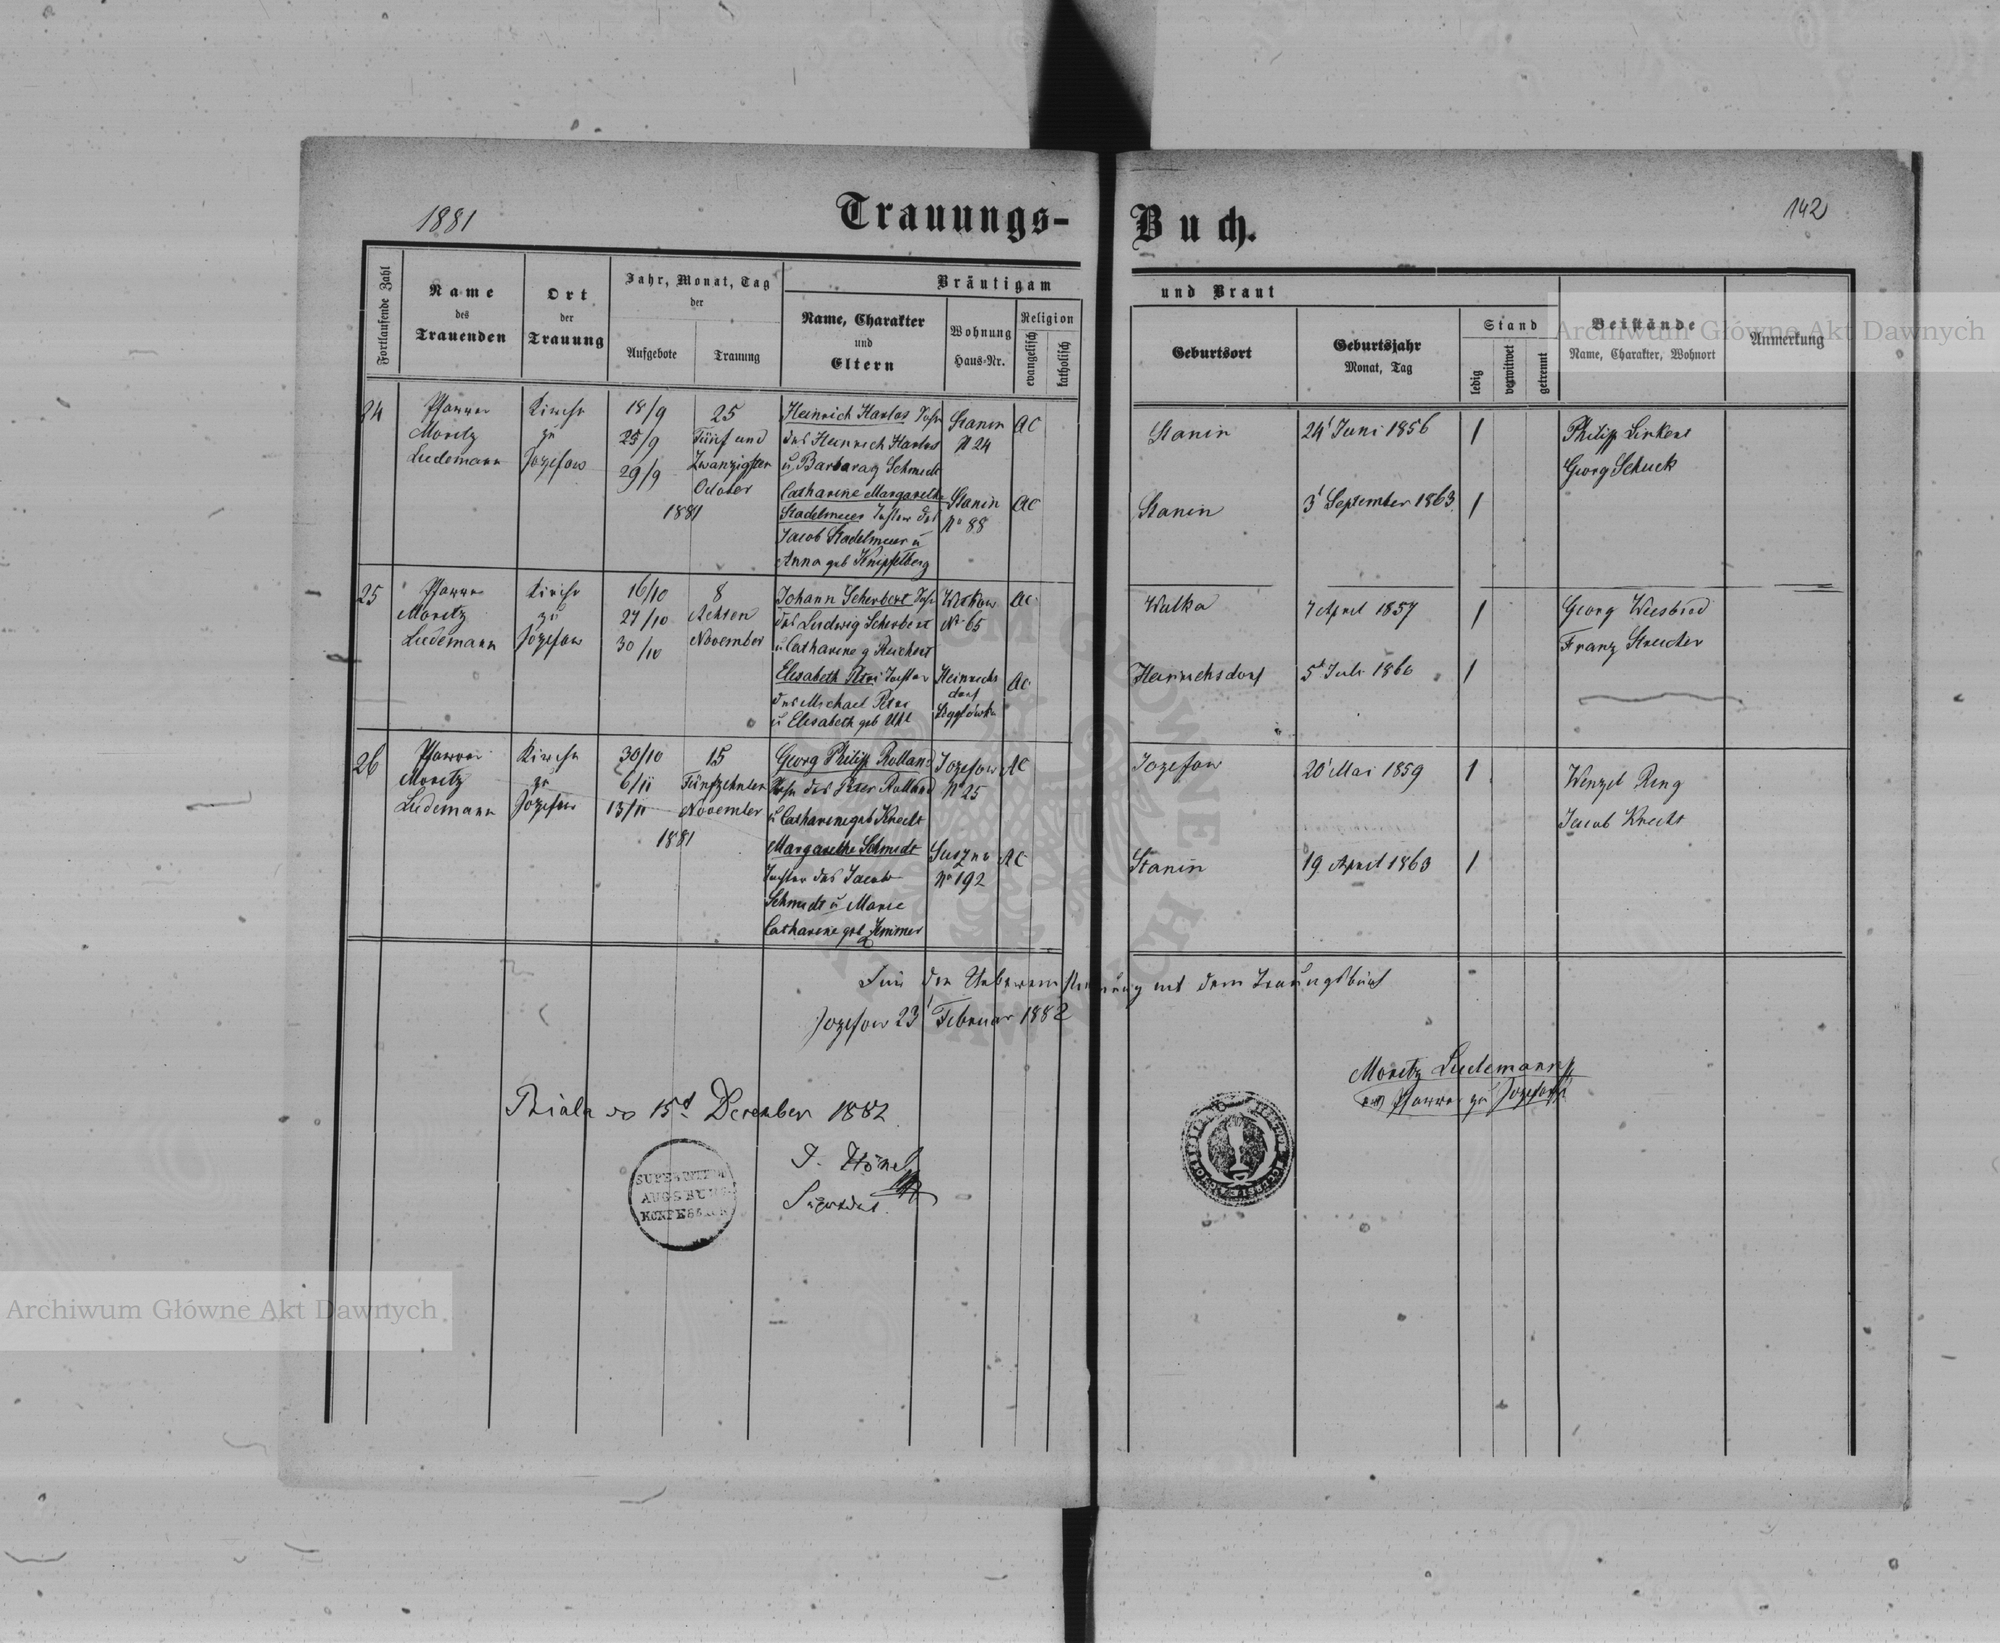 1881
Trauungs-Buch.
142
Fortlaufende Zahl
Name des Trauenden
Ort der Trauung
Jahr, Monat, Tag der
Aufgebote
Trauung
Bräutigam und Braut
Name, Charakter und Eltern
Wohnung Haus-Nr.
Religion
evangelisch
katholisch
Geburtsort
Geburtsjahr Monat, Tag
Stand
ledig
verwitwet
getrennt
Beistände
Name, Charakter, Wohnort
Anmerkung
24
Pfarrer
Moritz
Ludemann
Kirche
zu
Jozefow
18/9
25/9
29/9
25
Fünf und
Zwanzigsten
October
1881
Heinrich Harlos Sohn
des Heinrich Harlos
u. Barbara g Schmidt
Stanin
N 24
AC
Stanin
24' Juni 1856
1
Philipp
Georg Schuck
Catharine Margarethe
Stadelmeier Tochter des
Jacob Stadelmeier u
Anna geb Knipfelberg
Stanin
No 88
AC
Stanin
3' September 1863
1
25
Pfarrer
Moritz
Ludemann
Kirche
zu
Jozefow
16/10
27/10
30/10
8
Achten
November
Johann Scherbert Sohn
des Ludwig Scherbert
u Catharine g Reichert
N 65
AC
Wulka
7 April 1857
1
Georg Wiesbrod
Franz Streicher
Elisabeth Peter Tochter
des Michael Peter
u Elisabeth geb Uhl
Heinrichs
dorf
AC
Heinrichsdorf
5t Juli 1860
1
26
Pfarrer
Moritz
Ludemann
Kirche
zu
Jozefow
30/10
6/11
13/11
15
Fünfzehnten
November
1881
Georg Philipp Rolland
Sohn des Peter Rolland
u Catharine geb Knecht
Jozefow
N 25
AC
Jozefow
20' Mai 1859
1
Wenzel Ring
Jacob Knecht
Margarethe Schmidt
Tochter des Jacob
Schmidt u Marie
Catharine geb Jemmer
Suszno
No 192
AC
Stanin
19 April 1863
1
Für die Uebereinstimmung mit dem Trauungsbuch
Jozefow 23' Februar 1882
Moritz Ludemann
ev Pfarrer zu Jozefow
Biala 15t December 1882
AUGSBURG
Archiwum Główne Akt Dawnych
Archiwum Główne Akt Dawnych